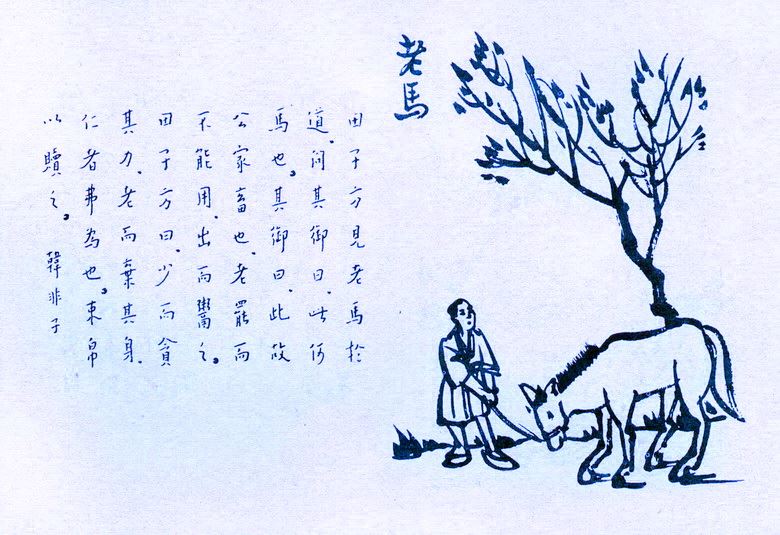 老馬
田子方見老馬於
道、問其御曰、此何
馬也。其御曰、此故
公家畜也、老罷而
不能用、出而鬻之。
田子方曰、少而貪
其力、老而棄其身、
仁者弗為也。束帛
以贖之。 韓非子